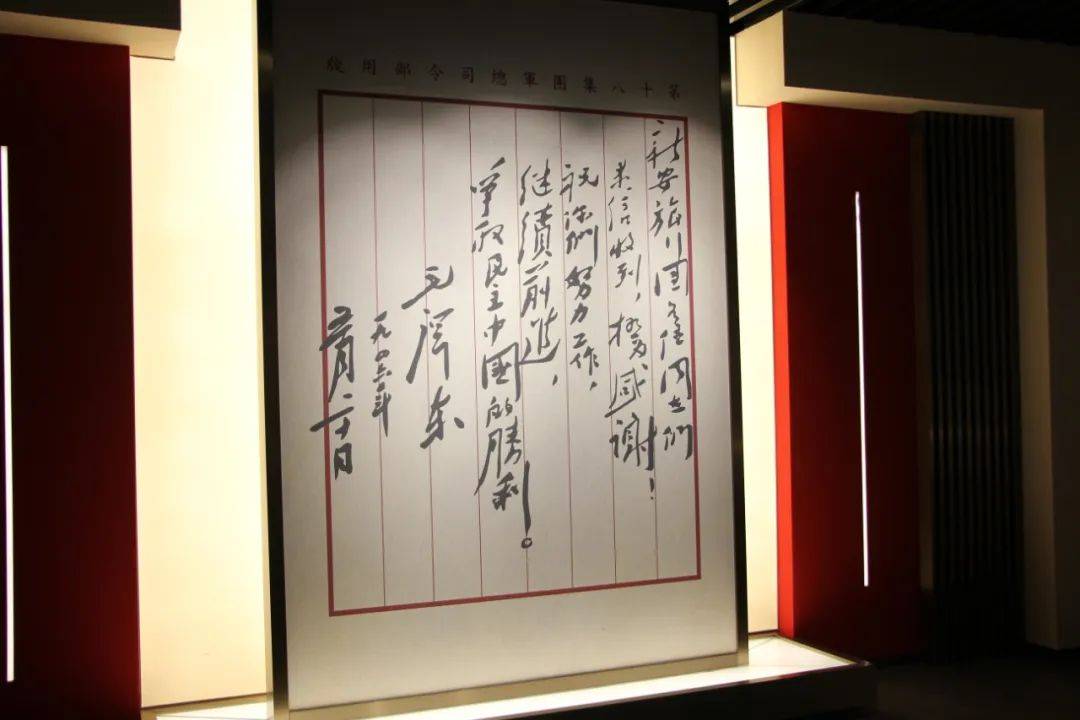 第十八集團軍總司令部用牋
新安旅行團各位同志們
来信收到，極為感謝！
祝你們努力工作，
继續前進，
爭取民主中國的勝利。
毛澤东
一九四六年
五月二十日